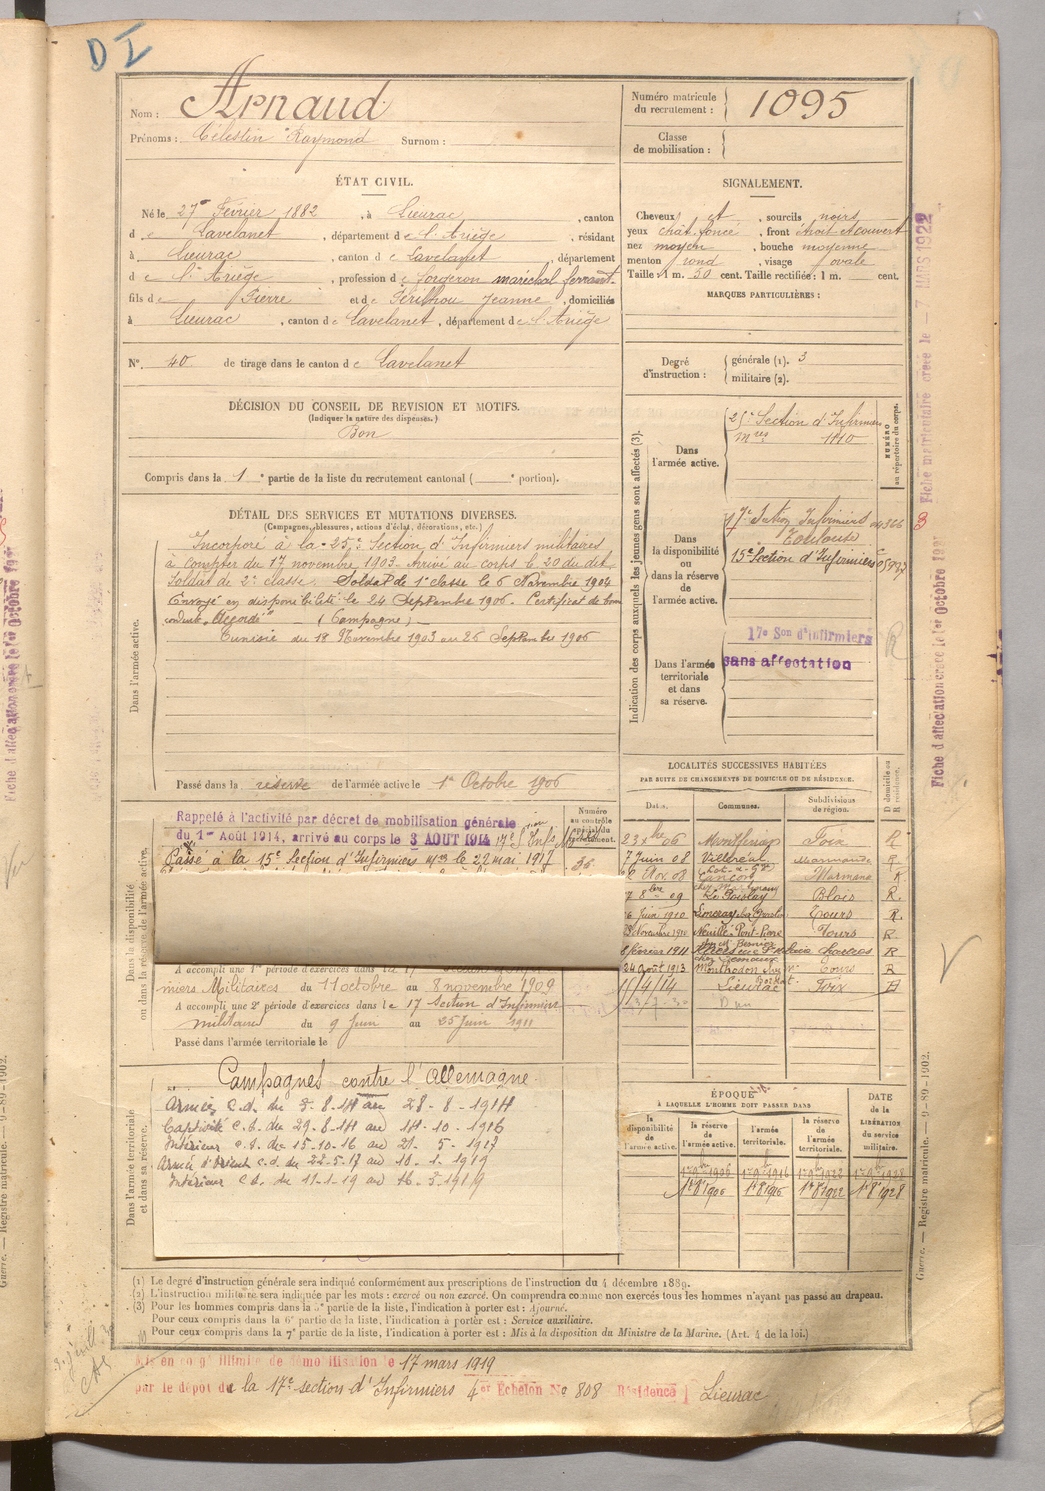 DI
Nom : Arnaud
Prénoms : Célestin Raymond Surnom :
Numéro matricule du recrutement : 1095
Classe de mobilisation :
ÉTAT CIVIL.
Né le 27 Février 1882, à Lieurac, canton
de Lavelanet, département de l'Ariège, résidant
à Lieurac, canton de Lavelanet, département
de l'Ariège, profession de forgeron maréchal ferrant
fils de Pierre et de Jeanne, domiciliés
à Lieurac, canton de Lavelanet, département de l'Ariège
SIGNALEMENT.
Cheveux et, sourcils noirs
yeux chât. foncé, front étroit et couvert
nez moyen, bouche moyenne
menton rond, visage ovale
Taille : 1 m. 50 cent. Taille rectifiée : 1 m. cent.
MARQUES PARTICULIÈRES :
N° 40 de tirage dans le canton de Lavelanet
Degré d'instruction : générale (1). 3
militaire (2).
DÉCISION DU CONSEIL DE REVISION ET MOTIFS.
(Indiquer la nature des dispenses.)
Bon
Compris dans la 1e partie de la liste du recrutement cantonal ( e portion).
DÉTAIL DES SERVICES ET MUTATIONS DIVERSES.
(Campagnes, blessures, actions d'éclat, décorations, etc.)
Dans l'armée active.
Incorporé à la 25e Section d'Infirmiers militaires
à compter du 17 novembre 1903. Arrivé au corps le 20 du dit
Soldat de 2e classe. Soldat de 1e classe le 6 Novembre 1904
Envoyé en disponibilité le 24 Septembre 1906. Certificat de bonne
conduite "Accordé" – (Campagne) –
Tunisie du 18 Novembre 1903 au 26 Septembre 1906
Passé dans la réserve de l'armée active le 1er Octobre 1906
Indication des corps auxquels les jeunes gens sont affectés (3).
NUMÉRO au répertoire du corps.
Dans l'armée active.
25e Section d'Infirmiers
mres 1110
Dans la disponibilité ou dans la réserve de l'armée active.
17e Section Infirmiers
Toulouse
15e Section d'Infirmiers
Dans l'armée territoriale et dans sa réserve.
17e Son d'infirmiers
sans affectation
LOCALITÉS SUCCESSIVES HABITÉES
PAR SUITE DE CHANGEMENTS DE DOMICILE OU DE RÉSIDENCE.
Dates. Communes. Subdivisions de région. D domicile ou R résidence.
Foix R
7 Juin 08 Villeréal Marmande R
Marmande R
Blois R.
Juin 1910 Tours R.
Novembre 1910 Neuillé-Pont-Pierre Tours R
8 février 1911 R
24 août 1913 Monthodon Tours R
11/4/14 Lieurac Foix
Dans la disponibilité ou dans la réserve de l'armée active.
Numéro au contrôle spécial du recrutement.
Rappelé à l'activité par décret de mobilisation générale
du 1er Août 1914, arrivé au corps le 3 AOUT 1914 17e
Passé à la 15e Section d'Infirmiers Mres le 22 mai 1917
A accompli une 1re période d'exercices dans la 17 Section d'Infirmiers Militaires du 11 octobre au 8 novembre 1909
A accompli une 2e période d'exercices dans le 17 Section d'Infirmiers
militaires du 9 Juin au 25 Juin 1911
Passé dans l'armée territoriale le
Dans l'armée territoriale et dans sa réserve.
Campagnes contre l'Allemagne
Armées C.d. du 3-8-14 au 28-8-1914
Captivité C.b. du 29-8-14 au 14-10-1916
Intérieur c.d. du 15-10-16 au 21-5-1917
Armée d'Orient c.d. du 22-5-17 au 10-1-1919
Intérieur C.d. du 11-1-19 au 16-3-1919
ÉPOQUE
À LAQUELLE L'HOMME DOIT PASSER DANS
la disponibilité de l'armée active. la réserve de l'armée active. l'armée territoriale. la réserve de l'armée territoriale. DATE de la LIBÉRATION du service militaire.
1er 8bre 1906 1er 8bre 1916 1er 8bre 1922 1er 8bre 1928
(1) Le degré d'instruction générale sera indiqué conformément aux prescriptions de l'instruction du 4 décembre 1889.
(2) L'instruction militaire sera indiquée par les mots : exercé ou non exercé. On comprendra comme non exercés tous les hommes n'ayant pas passé au drapeau.
(3) Pour les hommes compris dans la 5e partie de la liste, l'indication à porter est : Ajourné.
Pour ceux compris dans la 6e partie de la liste, l'indication à porter est : Service auxiliaire.
Pour ceux compris dans la 7e partie de la liste, l'indication à porter est : Mis à la disposition du Ministre de la Marine. (Art. 4 de la loi.)
Mis en congé illimité de démobilisation le 17 mars 1919
par le dépôt de la 17e section d'Infirmiers 4er Echelon No 808 Résidence Lieurac
Fiche matriculaire créée le 7 MARS 1922
Fiche d'affectation créée le 1er Octobre
Guerre. — Registre matricule. — 9-89-1902.